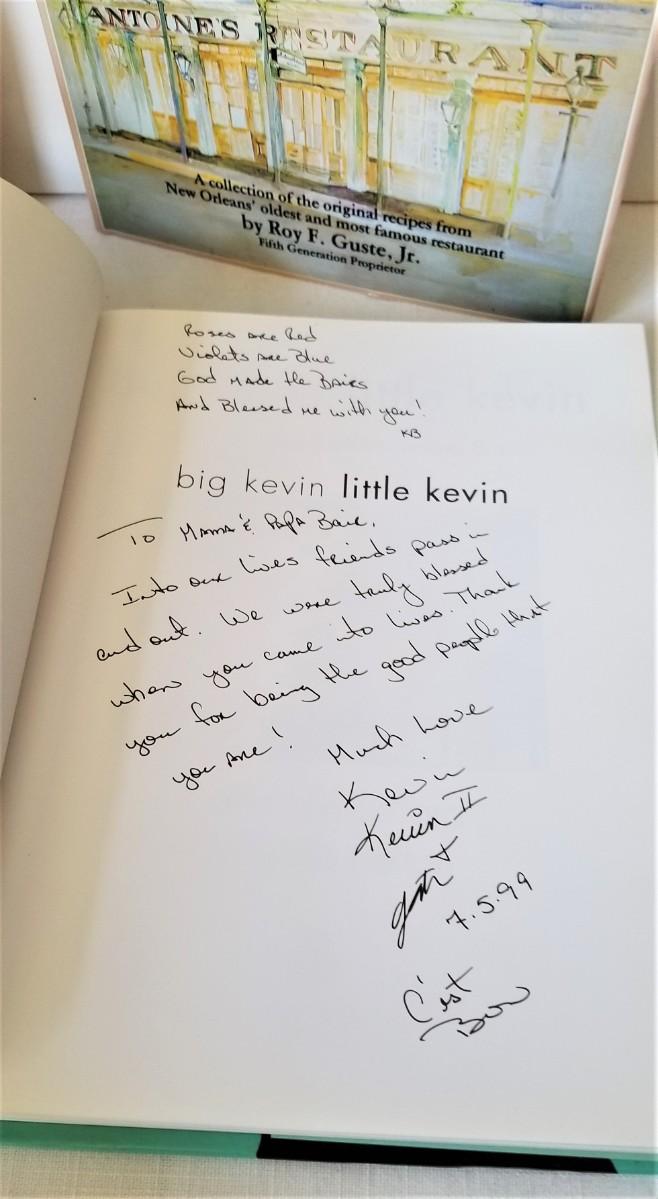 ANTOINE'S RESTAURANT
A collection of the original recipes from
New Orleans' oldest and most famous restaurant
by Roy F. Guste, Jr.
Fifth Generation Proprietor
Roses are Red
Violets are Blue
God Made the Bairs
And Blessed me with you!
KB
big kevin little kevin
To Mama & Papa Bair,
Into our lives friends pass in
and out. We were truly blessed
when you came into lives. Thank
you for being the good people that
you are!
Much Love
Kevin
Kevin II
7.5.99
C'est
Bon